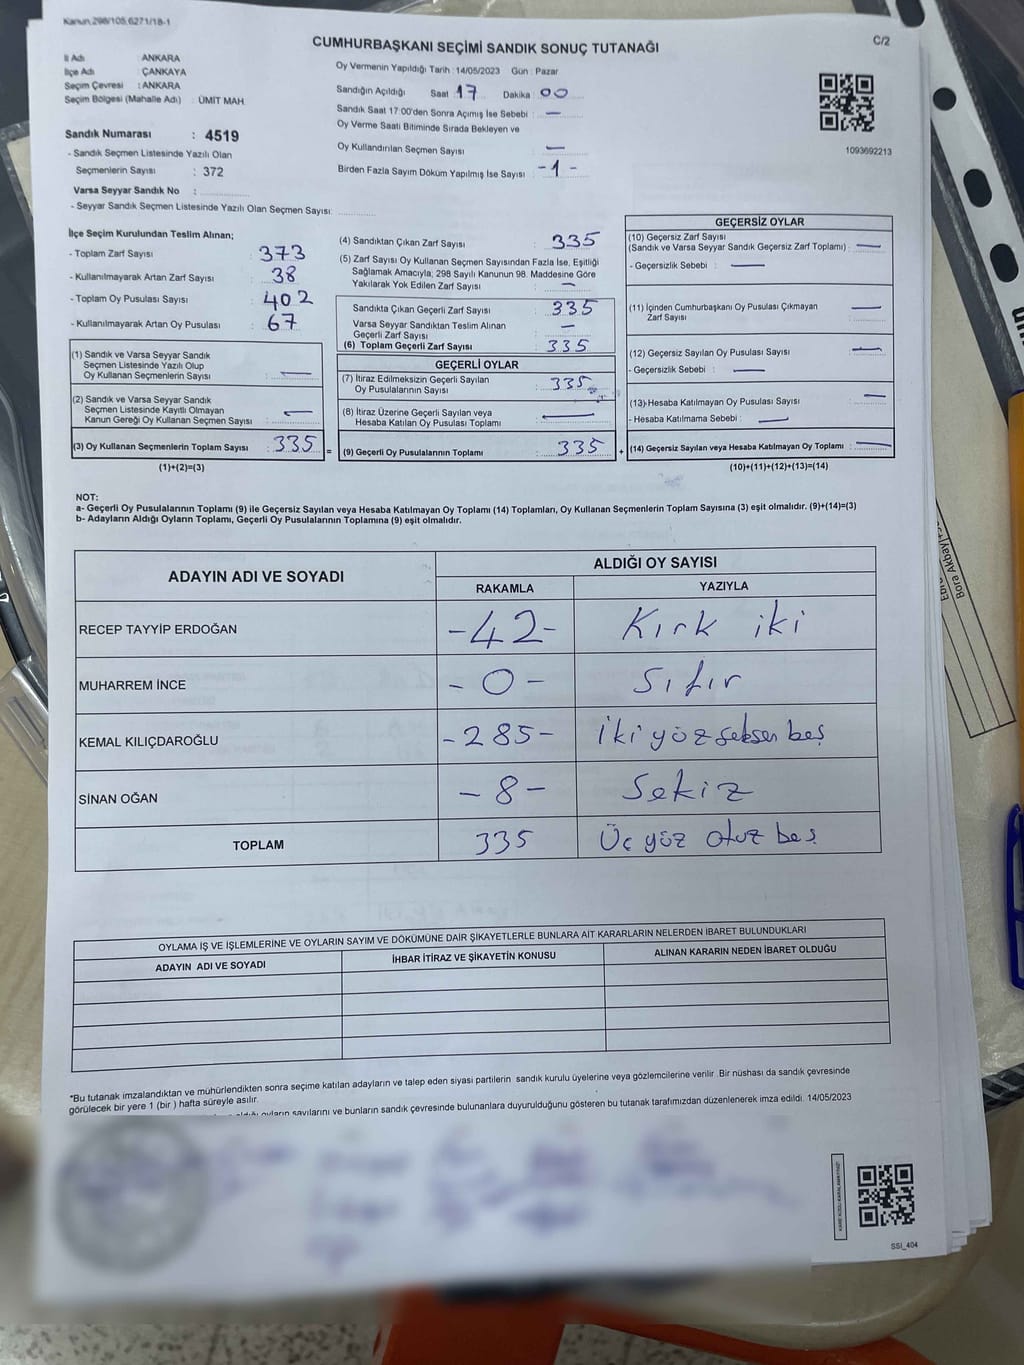 Kanun,298/105,6271/18-1
C/2
CUMHURBAŞKANI SEÇİMİ SANDIK SONUÇ TUTANAĞI
İl Adı : ANKARA
İlçe Adı : ÇANKAYA
Seçim Çevresi : ANKARA
Seçim Bölgesi (Mahalle Adı) : ÜMİT MAH.
Sandık Numarası : 4519
- Sandık Seçmen Listesinde Yazılı Olan
Seçmenlerin Sayısı : 372
Varsa Seyyar Sandık No :
- Seyyar Sandık Seçmen Listesinde Yazılı Olan Seçmen Sayısı:
Oy Vermenin Yapıldığı Tarih : 14/05/2023 Gün : Pazar
Sandığın Açıldığı Saat 17 Dakika 00
Sandık Saat 17:00'den Sonra Açımış İse Sebebi : —
Oy Verme Saati Bitiminde Sırada Bekleyen ve
Oy Kullandırılan Seçmen Sayısı —
Birden Fazla Sayım Döküm Yapılmış İse Sayısı -1-
1093692213
İlçe Seçim Kurulundan Teslim Alınan;
- Toplam Zarf Sayısı : 373
- Kullanılmayarak Artan Zarf Sayısı : 38
- Toplam Oy Pusulası Sayısı : 402
- Kullanılmayarak Artan Oy Pusulası : 67
(1) Sandık ve Varsa Seyyar Sandık
Seçmen Listesinde Yazılı Olup
Oy Kullanan Seçmenlerin Sayısı : —
(2) Sandık ve Varsa Seyyar Sandık
Seçmen Listesinde Kayıtlı Olmayan
Kanun Gereği Oy Kullanan Seçmen Sayısı : —
(3) Oy Kullanan Seçmenlerin Toplam Sayısı : 335 =
(1)+(2)=(3)
(4) Sandıktan Çıkan Zarf Sayısı : 335
(5) Zarf Sayısı Oy Kullanan Seçmen Sayısından Fazla İse, Eşitliği
Sağlamak Amacıyla; 298 Sayılı Kanunun 98. Maddesine Göre
Yakılarak Yok Edilen Zarf Sayısı : —
Sandıkta Çıkan Geçerli Zarf Sayısı : 335
Varsa Seyyar Sandıktan Teslim Alınan
Geçerli Zarf Sayısı : —
(6) Toplam Geçerli Zarf Sayısı : 335
GEÇERLİ OYLAR
(7) İtiraz Edilmeksizin Geçerli Sayılan
Oy Pusulalarının Sayısı : 335
(8) İtiraz Üzerine Geçerli Sayılan veya
Hesaba Katılan Oy Pusulası Toplamı : —
(9) Geçerli Oy Pusulalarının Toplamı : 335 +
GEÇERSİZ OYLAR
(10) Geçersiz Zarf Sayısı
(Sandık ve Varsa Seyyar Sandık Geçersiz Zarf Toplamı) : —
- Geçersizlik Sebebi : —
(11) İçinden Cumhurbaşkanı Oy Pusulası Çıkmayan
Zarf Sayısı : —
(12) Geçersiz Sayılan Oy Pusulası Sayısı : —
- Geçersizlik Sebebi : —
(13) Hesaba Katılmayan Oy Pusulası Sayısı : —
- Hesaba Katılmama Sebebi : —
(14) Geçersiz Sayılan veya Hesaba Katılmayan Oy Toplamı : —
(10)+(11)+(12)+(13)=(14)
NOT:
a- Geçerli Oy Pusulalarının Toplamı (9) ile Geçersiz Sayılan veya Hesaba Katılmayan Oy Toplamı (14) Toplamları, Oy Kullanan Seçmenlerin Toplam Sayısına (3) eşit olmalıdır. (9)+(14)=(3)
b- Adayların Aldığı Oyların Toplamı, Geçerli Oy Pusulalarının Toplamına (9) eşit olmalıdır.
ADAYIN ADI VE SOYADI
ALDIĞI OY SAYISI
RAKAMLA YAZIYLA
RECEP TAYYİP ERDOĞAN -42- Kırk iki
MUHARREM İNCE -0- Sıfır
KEMAL KILIÇDAROĞLU -285- İki yüz seksen beş
SİNAN OĞAN -8- Sekiz
TOPLAM 335 Üç yüz otuz beş
OYLAMA İŞ VE İŞLEMLERİNE VE OYLARIN SAYIM VE DÖKÜMÜNE DAİR ŞİKAYETLERLE BUNLARA AİT KARARLARIN NELERDEN İBARET BULUNDUKLARI
ADAYIN ADI VE SOYADI İHBAR İTİRAZ VE ŞİKAYETİN KONUSU ALINAN KARARIN NEDEN İBARET OLDUĞU
*Bu tutanak imzalandıktan ve mühürlendikten sonra seçime katılan adayların ve talep eden siyasi partilerin sandık kurulu üyelerine veya gözlemcilerine verilir. Bir nüshası da sandık çevresinde
görülecek bir yere 1 (bir ) hafta süreyle asılır.
oyların sayılarını ve bunların sandık çevresinde bulunanlara duyurulduğunu gösteren bu tutanak tarafımızdan düzenlenerek imza edildi. 14/05/2023
SSİ_404
Bora Akbay